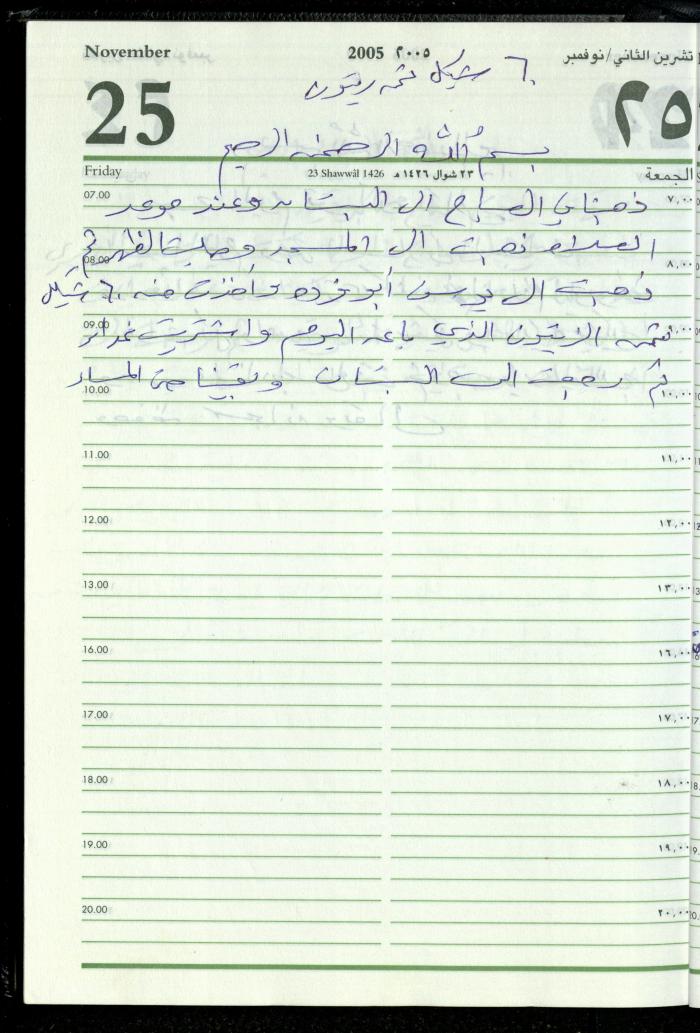 November 2005 ٢٠٠٥ تشرين الثاني/نوفمبر
25 ٢٥
٦٠ شيكل ثمن زيتون
بسم الله الرحمن الرحيم
Friday 23 Shawwâl 1426 ٢٣ شوال ١٤٢٦ هـ الجمعة
07.00 ذهبنا في الصباح الى البستان وعند موعد ٧,٠٠
الصلاة ذهبت الى المسجد وصليت الظهر ثم
08.00 ٨,٠٠
ذهبت الى أبو فوده وأخذت منه ٦٠ شيكل
09.00 ثمن الزيتون الذي باعه اليوم واشتريت ٩,٠٠
ثم رجعت الى البستان وبقينا حتى المساء
10.00 ١٠,٠٠
11.00 ١١,٠٠
12.00 ١٢,٠٠
13.00 ١٣,٠٠
16.00 ١٦,٠٠
17.00 ١٧,٠٠
18.00 ١٨,٠٠
19.00 ١٩,٠٠
20.00 ٢٠,٠٠